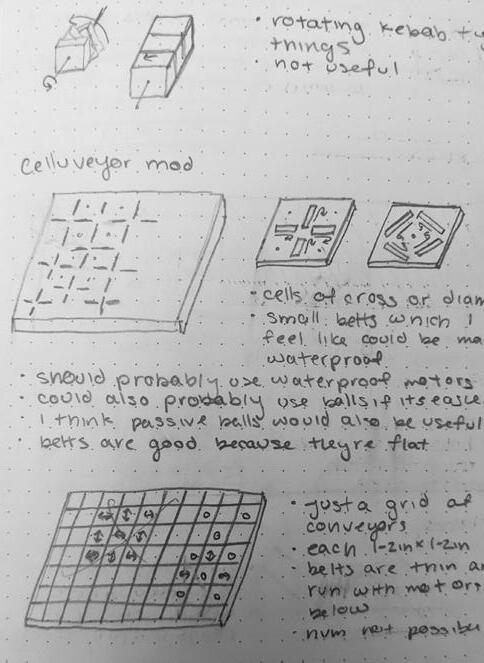 • rotating kebab ty
things
• not useful
Celluveyor mod
• cells of cross or diam
• small belts which I
feel like could be ma
waterproof
• should probably use waterproof motors
• could also probably use balls if its easie
• I think passive balls would also be useful
• belts are good because theyre flat
• just a grid of
conveyors
• each 1-2in x 1-2in
belts are thin an
run with motors
below
• hum not possible